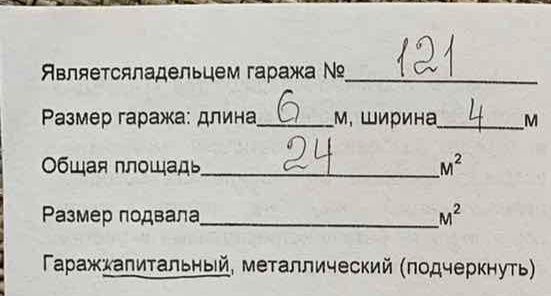 Являетсяладельцем гаража № 121
Размер гаража: длина 6 м, ширина 4 м
Общая площадь 24 м²
Размер подвала м²
Гаражкапитальный, металлический (подчеркнуть)